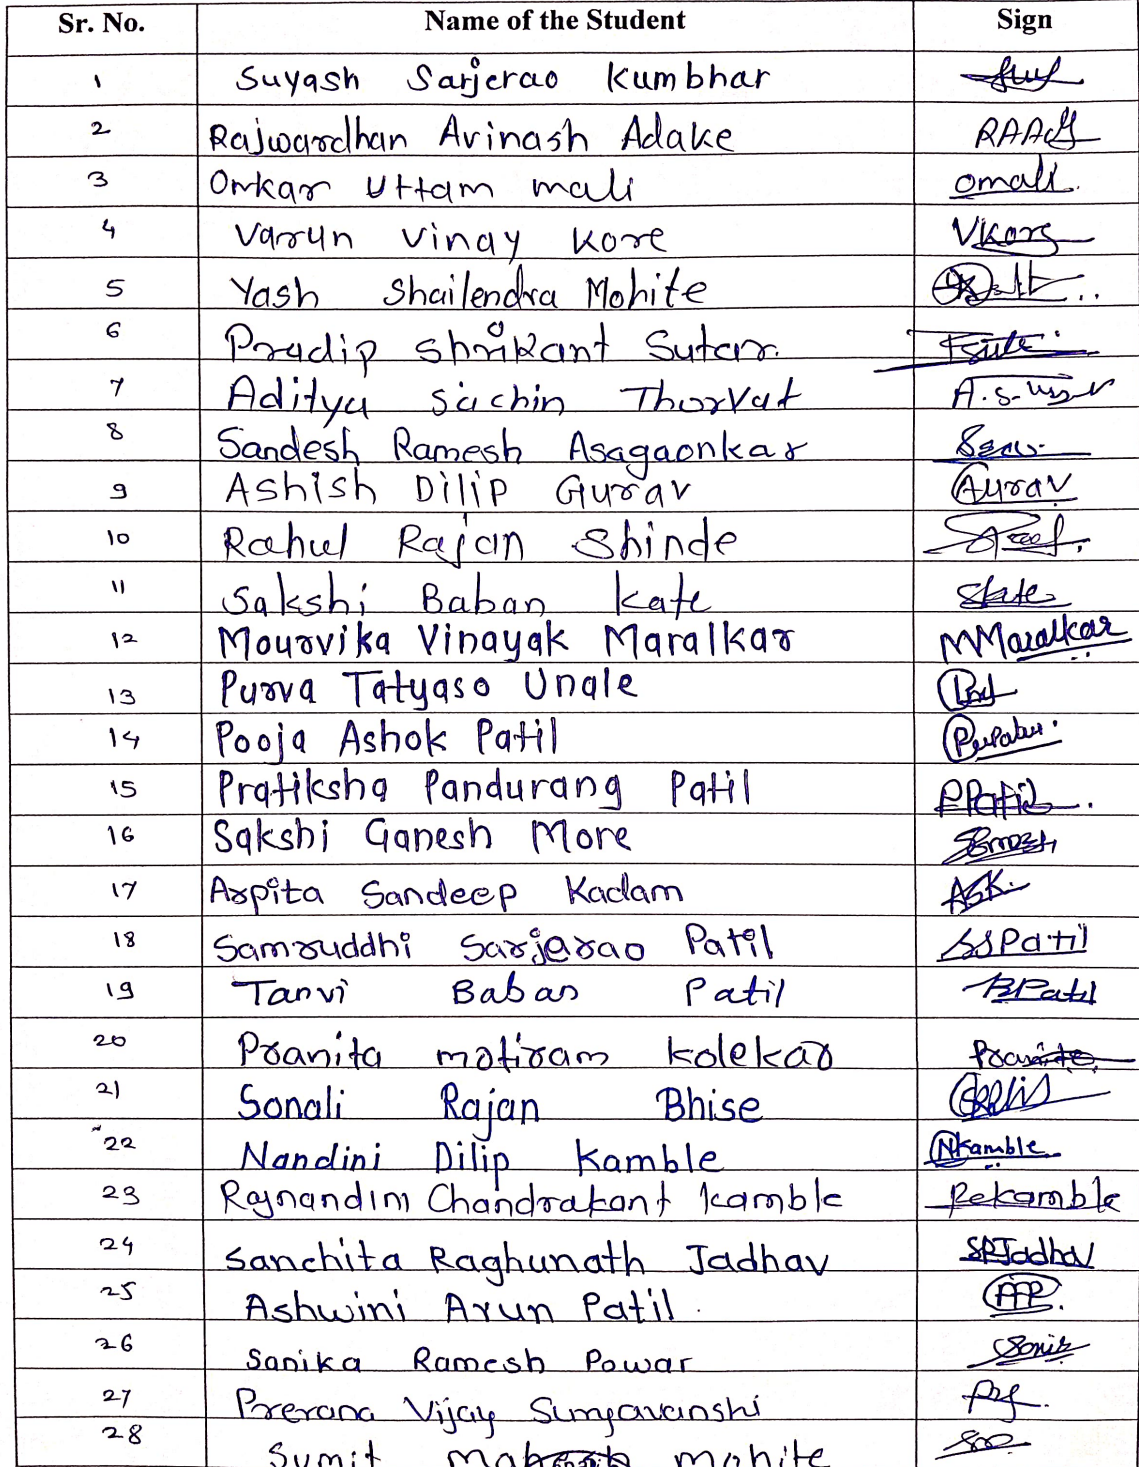 Sr. No. Name of the Student Sign
1 Suyash Sarjerao Kumbhar
2 Rajwardhan Avinash Adake
3 Omkar Uttam mali omali
4 Varun Vinay Kore VKore
5 Yash Shailendra Mohite
6 Pradip Shrikant Sutar
7 Aditya Sachin Thorvat
8 Sandesh Ramesh Asagaonkar
9 Ashish Dilip Gurav Gurav
10 Rahul Rajan Shinde
11 Sakshi Baban Kate
12 Mourvika Vinayak Maralkar MMaralkar
13 Purva Tatyaso Unale
14 Pooja Ashok Patil
15 Pratiksha Pandurang Patil PPatil
16 Sakshi Ganesh More
17 Arpita Sandeep Kadam ASK
18 Samruddhi Sarjerao Patil SSPatil
19 Tanvi Baban Patil BPatil
20 Pranita motiram kolekar Pranita
21 Sonali Rajan Bhise
22 Nandini Dilip Kamble NKamble
23 Rajnandini Chandrakant Kamble Rckamble
24 Sanchita Raghunath Jadhav SRJadhav
25 Ashwini Arun Patil. AAP
26 Sanika Ramesh Powar
27 Prerana Vijay Suryavanshi
28 Sumit mohite